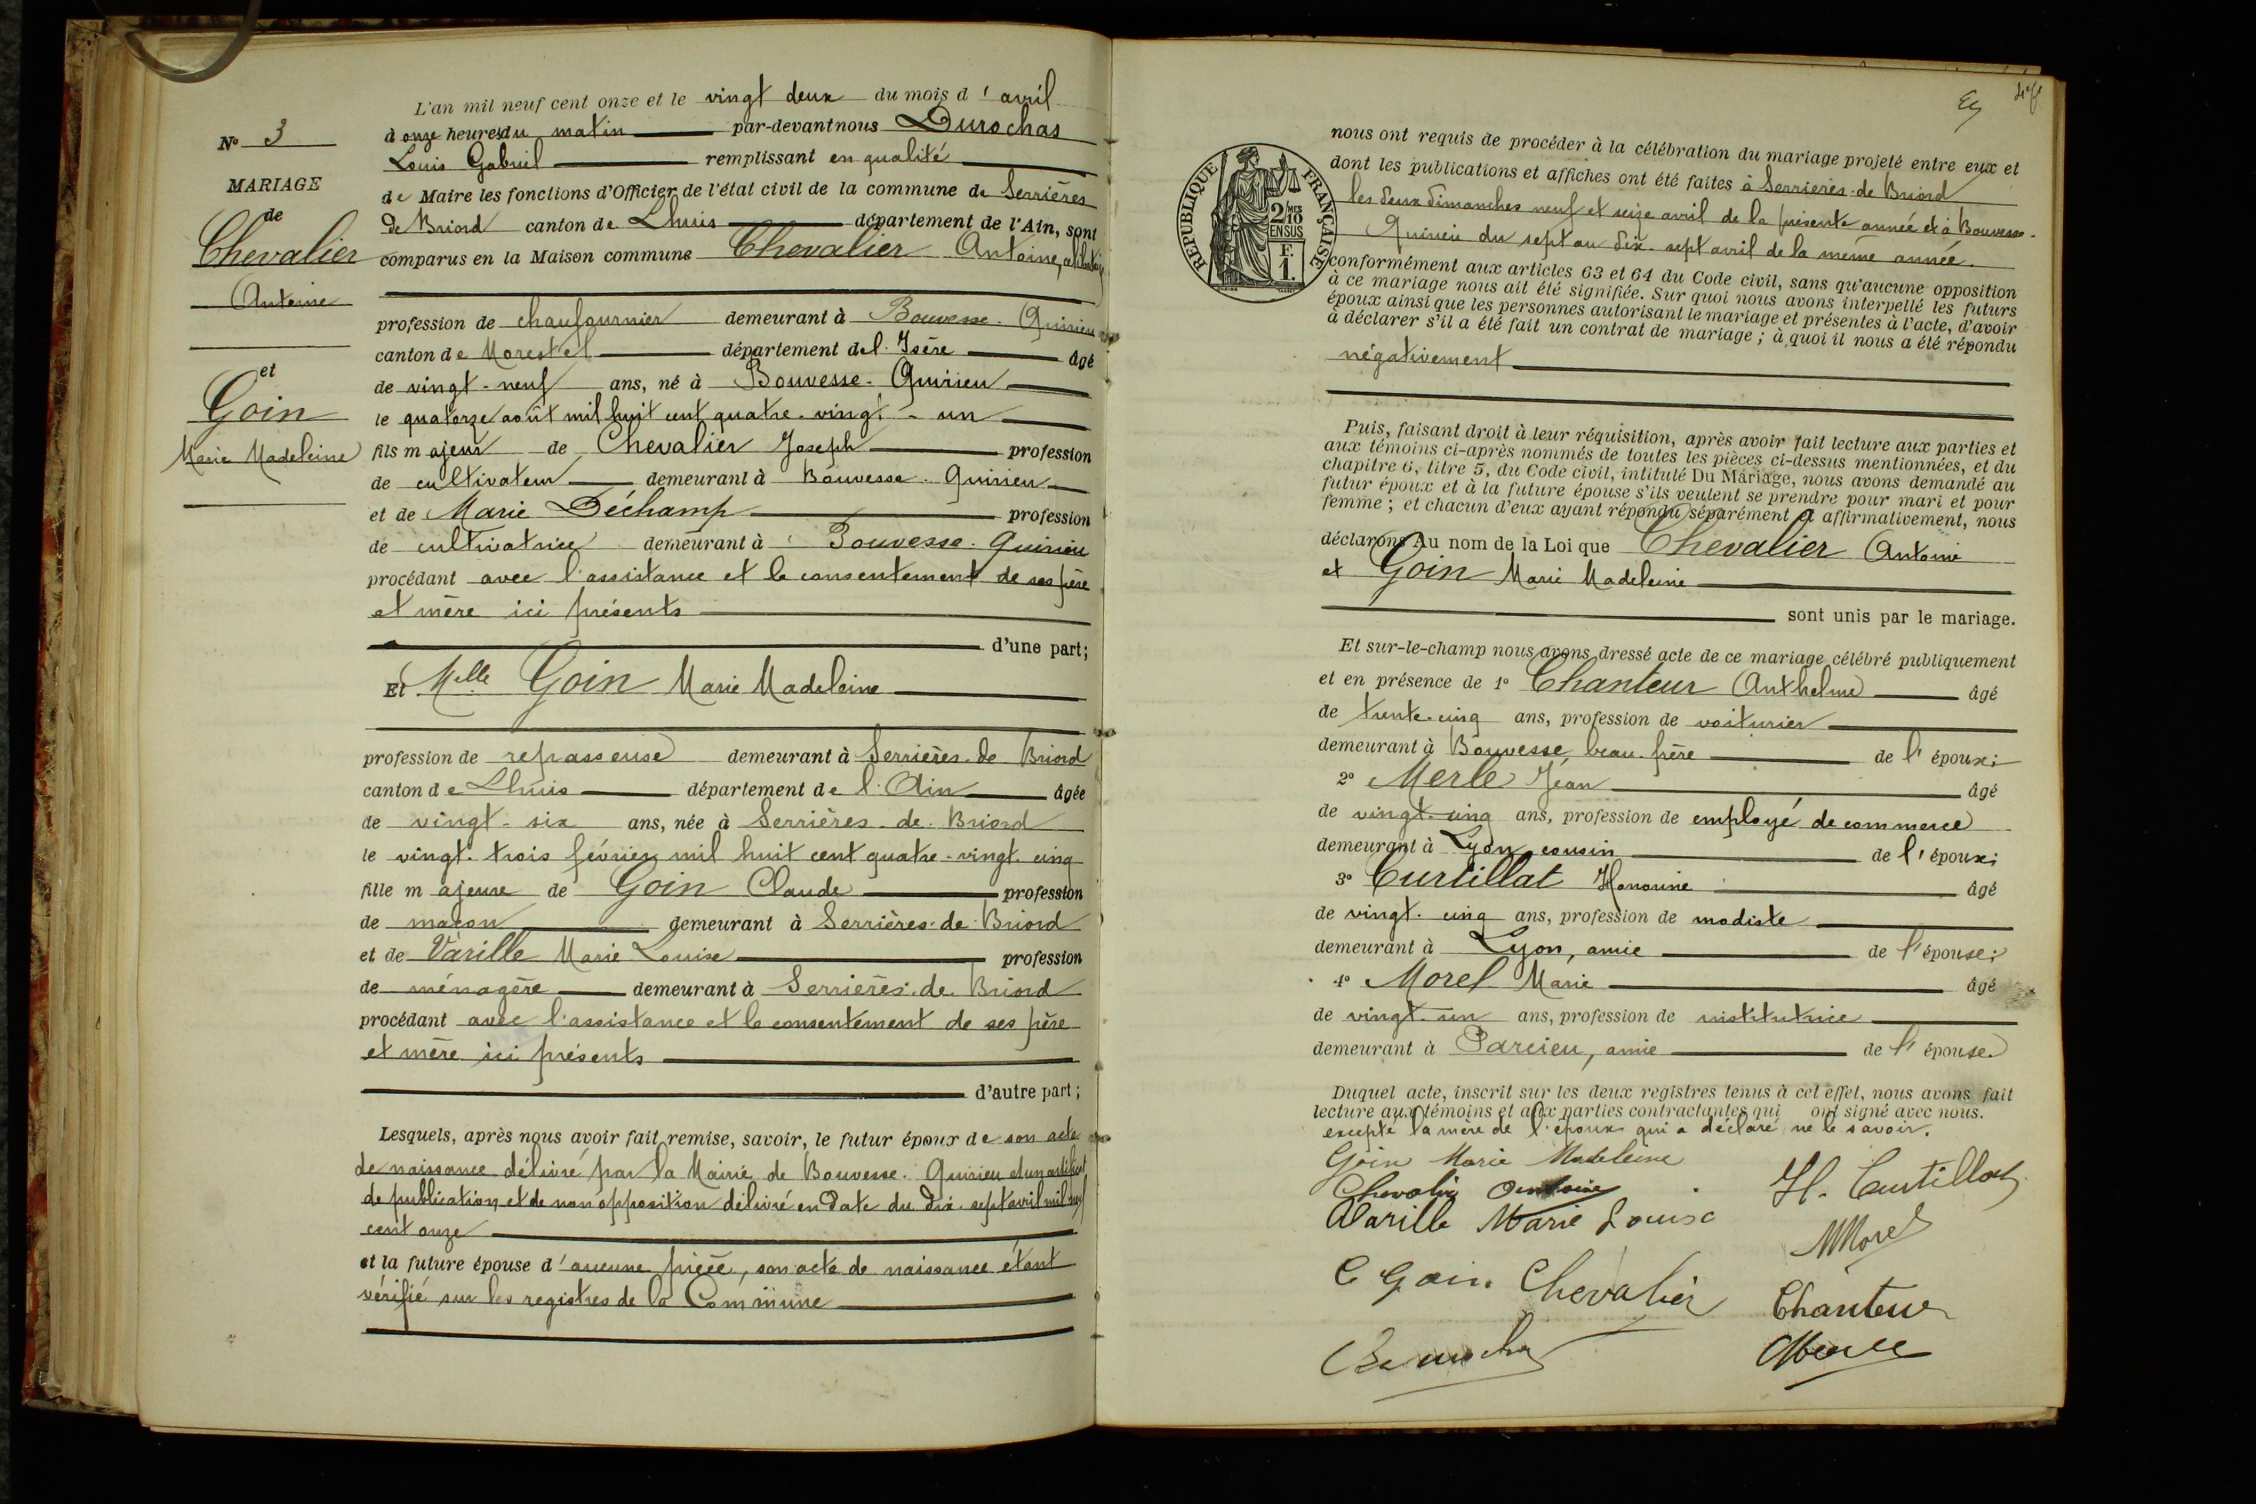 L'an mil neuf cent onze et le vingt deux du mois d'avril
N° 3
à onze heures du matin par-devant nous Durochas
Louis Gabriel remplissant en qualité
MARIAGE
de Maire les fonctions d'Officier de l'état civil de la commune de Serrières
de
de Briord canton de Lhuis département de l'Ain, sont
Chevalier
comparus en la Maison commune Chevalier Antoine, célibataire
Antoine
profession de chaufournier demeurant à Bouvesse-Quirieu
canton de Morestel département de l'Isère âgé
et
de vingt-neuf ans, né à Bouvesse-Quirieu
Goin
le quatorze août mil huit cent quatre-vingt-un
Marie Madeleine
fils majeur de Chevalier Joseph profession
de cultivateur demeurant à Bouvesse-Quirieu
et de Marie Déchamp profession
de cultivatrice demeurant à Bouvesse-Quirieu
procédant avec l'assistance et le consentement de ses père
et mère ici présents
d'une part;
Et Melle Goin Marie Madeleine
profession de repasseuse demeurant à Serrières-de Briord
canton de Lhuis département de l'Ain âgée
de vingt-six ans, née à Serrières-de-Briord
le vingt-trois février mil huit cent quatre-vingt-cinq
fille majeure de Goin Claude profession
de maçon demeurant à Serrières-de-Briord
et de Varille Marie Louise profession
de ménagère demeurant à Serrières-de-Briord
procédant avec l'assistance et le consentement de ses père
et mère ici présents
d'autre part;
Lesquels, après nous avoir fait remise, savoir, le futur époux de son acte
de naissance délivré par la Mairie de Bouvesse-Quirieu et un certificat
de publication et de non opposition délivré en date du dix-sept avril mil neuf
cent onze
et la future épouse d'aucune pièce, son acte de naissance étant
vérifié sur les registres de la Commune
nous ont requis de procéder à la célébration du mariage projeté entre eux et
dont les publications et affiches ont été faites à Serrières-de Briord
les deux dimanches neuf et seize avril de la présente année et à Bouvesse-
Quirieu du sept au dix-sept avril de la même année.
RÉPUBLIQUE FRANÇAISE
2/10 MES
EN SUS
F.
1.
conformément aux articles 63 et 64 du Code civil, sans qu'aucune opposition
à ce mariage nous ait été signifiée. Sur quoi nous avons interpellé les futurs
époux ainsi que les personnes autorisant le mariage et présentes à l'acte, d'avoir
à déclarer s'il a été fait un contrat de mariage; à quoi il nous a été répondu
négativement
Puis, faisant droit à leur réquisition, après avoir fait lecture aux parties et
aux témoins ci-après nommés de toutes les pièces ci-dessus mentionnées, et du
chapitre 6, titre 5, du Code civil, intitulé Du Mariage, nous avons demandé au
futur époux et à la future épouse s'ils veulent se prendre pour mari et pour
femme; et chacun d'eux ayant répondu séparément et affirmativement, nous
déclarons Au nom de la Loi que Chevalier Antoine
et Goin Marie Madeleine
sont unis par le mariage.
Et sur-le-champ nous avons dressé acte de ce mariage célébré publiquement
et en présence de 1° Chanteur Anthelme âgé
de trente-cinq ans, profession de voiturier
demeurant à Bouvesse, beau-frère de l'époux;
2° Merle Jean âgé
de vingt-cinq ans, profession de employé de commerce
demeurant à Lyon, cousin de l'époux;
3° Curtillat Honorine âgé
de vingt-cinq ans, profession de modiste
demeurant à Lyon, amie de l'épouse;
4° Morel Marie âgé
de vingt-un ans, profession de institutrice
demeurant à Parcieu, amie de l'épouse.
Duquel acte, inscrit sur les deux registres tenus à cet effet, nous avons fait
lecture aux témoins et aux parties contractantes qui ont signé avec nous.
excepté la mère de l'époux qui a déclaré ne le savoir.
Goin Marie Madeleine
Chevalier Antoine
H. Curtillat
Varille Marie Louise
M Morel
C Goin Chevalier
Chanteur
Durochas
Merle